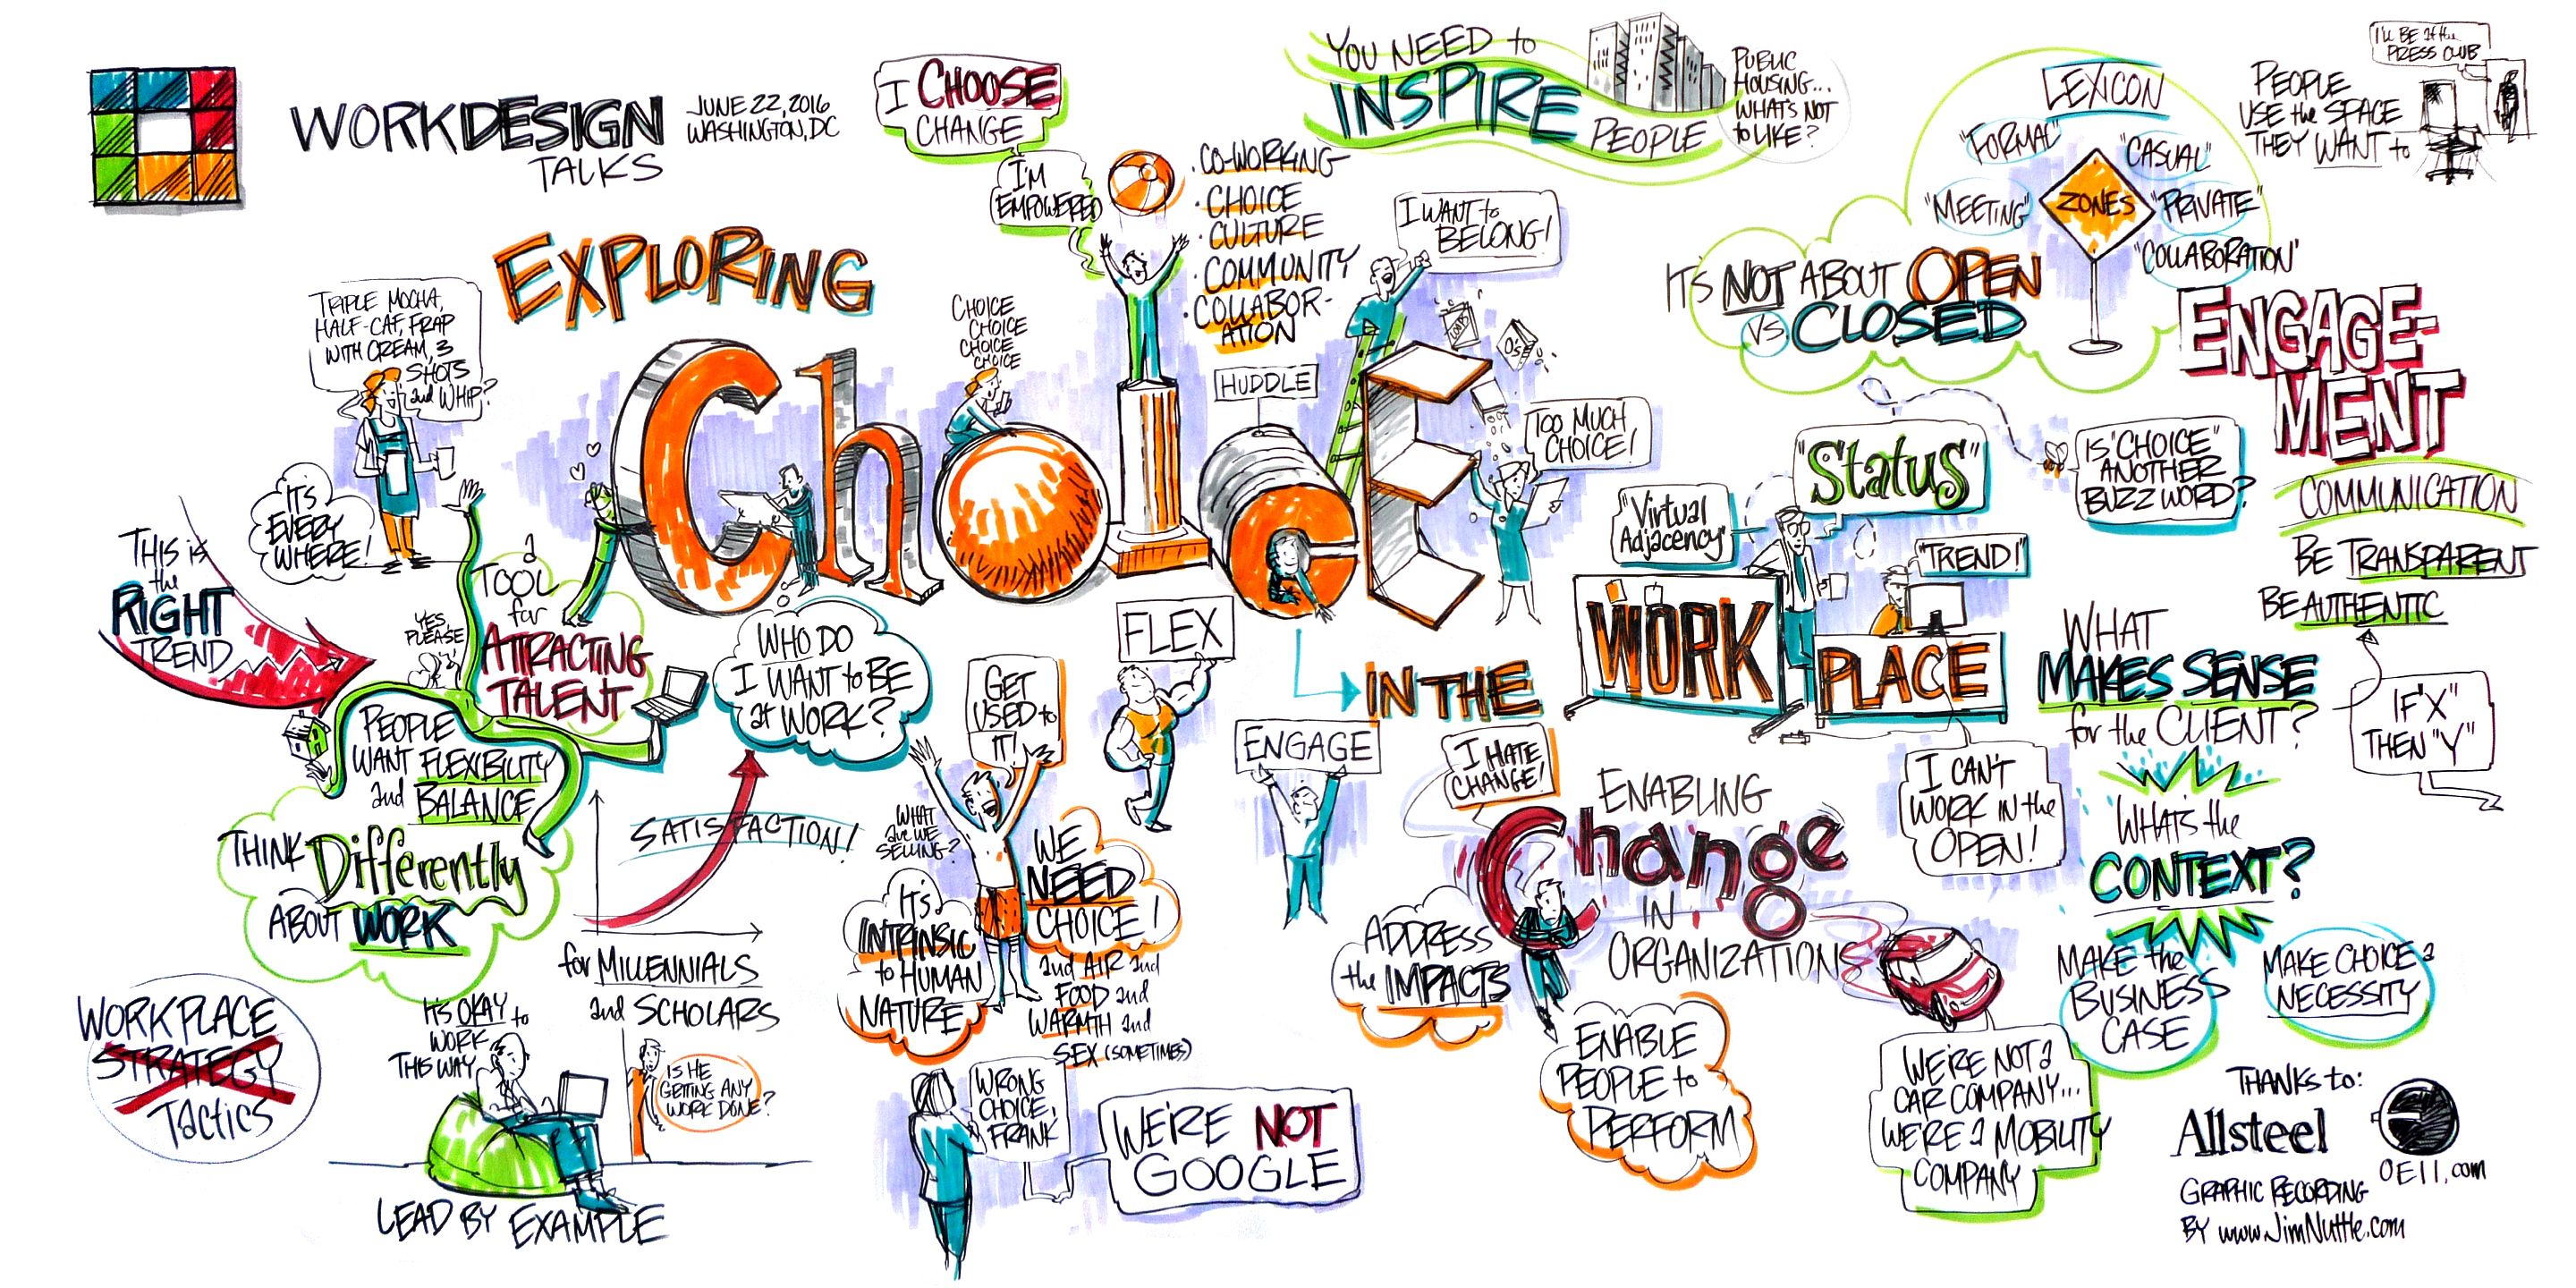 WORKDESIGN
TALKS
JUNE 22, 2016
WASHINGTON, DC
I CHOOSE
CHANGE
I'M
EMPOWERED
• CO-WORKING
• CHOICE
• CULTURE
• COMMUNITY
• COLLABOR-
ATION
YOU NEED to
INSPIRE
PEOPLE
PUBLIC
HOUSING...
WHAT'S NOT
to LIKE?
I WANT to
BELONG!
LEXICON
"FORMAL"
"CASUAL"
"MEETING"
ZONES
"PRIVATE"
"COLLABORATION"
IT'S NOT ABOUT OPEN
VS CLOSED
PEOPLE
USE the SPACE
THEY WANT to
I'LL BE at the
PRESS CLUB
EXPLORING
ChoicE
IN THE
WORK
PLACE
TRIPLE MOCHA,
HALF-CAF, FRAP
WITH CREAM, 3
SHOTS
and WHIP?
CHOICE
CHOICE
CHOICE
CHOICE
HUDDLE
TOO MUCH
CHOICE!
"Status"
"Virtual
Adjacency"
"TREND!"
IS "CHOICE"
ANOTHER
BUZZ WORD?
ENGAGE-
MENT
COMMUNICATION
BE TRANSPARENT
BE AUTHENTIC
IT'S
EVERY
WHERE!
THIS is
the
RIGHT
TREND
YES,
PLEASE
a
TOOL
for
ATTRACTING
TALENT
PEOPLE
WANT FLEXIBILITY
and BALANCE
THINK
Differently
ABOUT WORK
WHO DO
I WANT to BE
at WORK?
SATISFACTION!
for MILLENNIALS
and SCHOLARS
GET
USED to
IT!
FLEX
ENGAGE
WHAT
are WE
SELLING?
IT'S
INTRINSIC
to HUMAN
NATURE
WE
NEED
CHOICE!
and AIR and
FOOD and
WARMTH and
SEX (SOMETIMES)
I HATE
CHANGE!
ENABLING
Change
IN
ORGANIZATIONS
ADDRESS
the IMPACTS
ENABLE
PEOPLE to
PERFORM
I CAN'T
WORK IN the
OPEN!
WE'RE NOT a
CAR COMPANY...
WE'RE a MOBILITY
COMPANY
WHAT
MAKES SENSE
for the CLIENT?
IF "X"
THEN "Y"
WHAT'S the
CONTEXT?
MAKE the
BUSINESS
CASE
MAKE CHOICE a
NECESSITY
WORKPLACE
STRATEGY
TACTICS
IT'S OKAY to
WORK
THIS WAY
IS HE
GETTING ANY
WORK DONE?
LEAD BY EXAMPLE
WRONG
CHOICE,
FRANK
WE'RE NOT
GOOGLE
THANKS to:
Allsteel
OEII.com
GRAPHIC RECORDING
BY www.JimNuttle.com